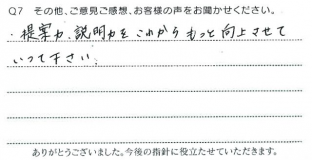 Q7 その他、ご意見ご感想、お客様の声をお聞かせください。
・提案力、説明力をこれからもっと向上させて
いって下さい。
ありがとうございました。今後の指針に役立たせていただきます。